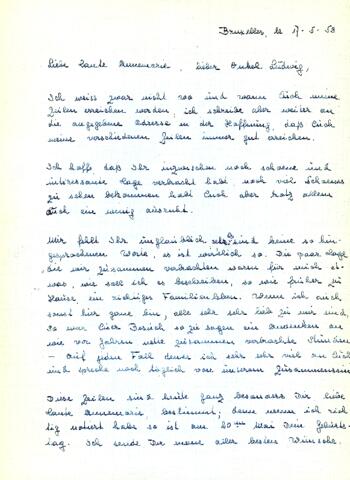 Bruxelles, le 17-5-53
Liebe Tante Annemarie, lieber Onkel Ludwig,
Ich weiss zwar nicht wo und wann Euch meine
Zeilen erreichen werden, ich schreibe aber weiter an
die angegebene Adresse in der Hoffnung, daß Euch
meine verschiedenen Zeilen immer gut erreichen.
Ich hoffe, daß Ihr inzwischen noch schoene und
interessante Tage verbracht habt, noch viel Schoenes
zu sehen bekommen habt Euch aber trotz allem
auch ein wenig ausruht.
Mir fehlt Ihr unglaublich, das sind keine so hin-
gesprochenen Worte, es ist wirklich so. Die paar Tage
die wir zusammen verbrachten waren für mich et-
was, wie soll ich es beschreiben, so wie früher zu
Hause, ein richtiges Familienleben. Wenn ich auch
sonst hier gerne bin, alle sehr sehr lieb zu mir sind,
so war Euer Besuch so zu sagen ein Andenken an
wie vor Jahren nette zusammen verbrachte Stunden
- Auf jeden Fall denke ich sehr sehr viel an Euch
und spreche noch täglich von unserem Zusammensein
Diese Zeilen sind heute ganz besonders Dir liebe
Tante Annemarie bestimmt; denn wenn ich rich-
tig notiert habe so ist am Mai Dein Geburts-
tag. Ich sende Dir meine aller besten Wünsche.